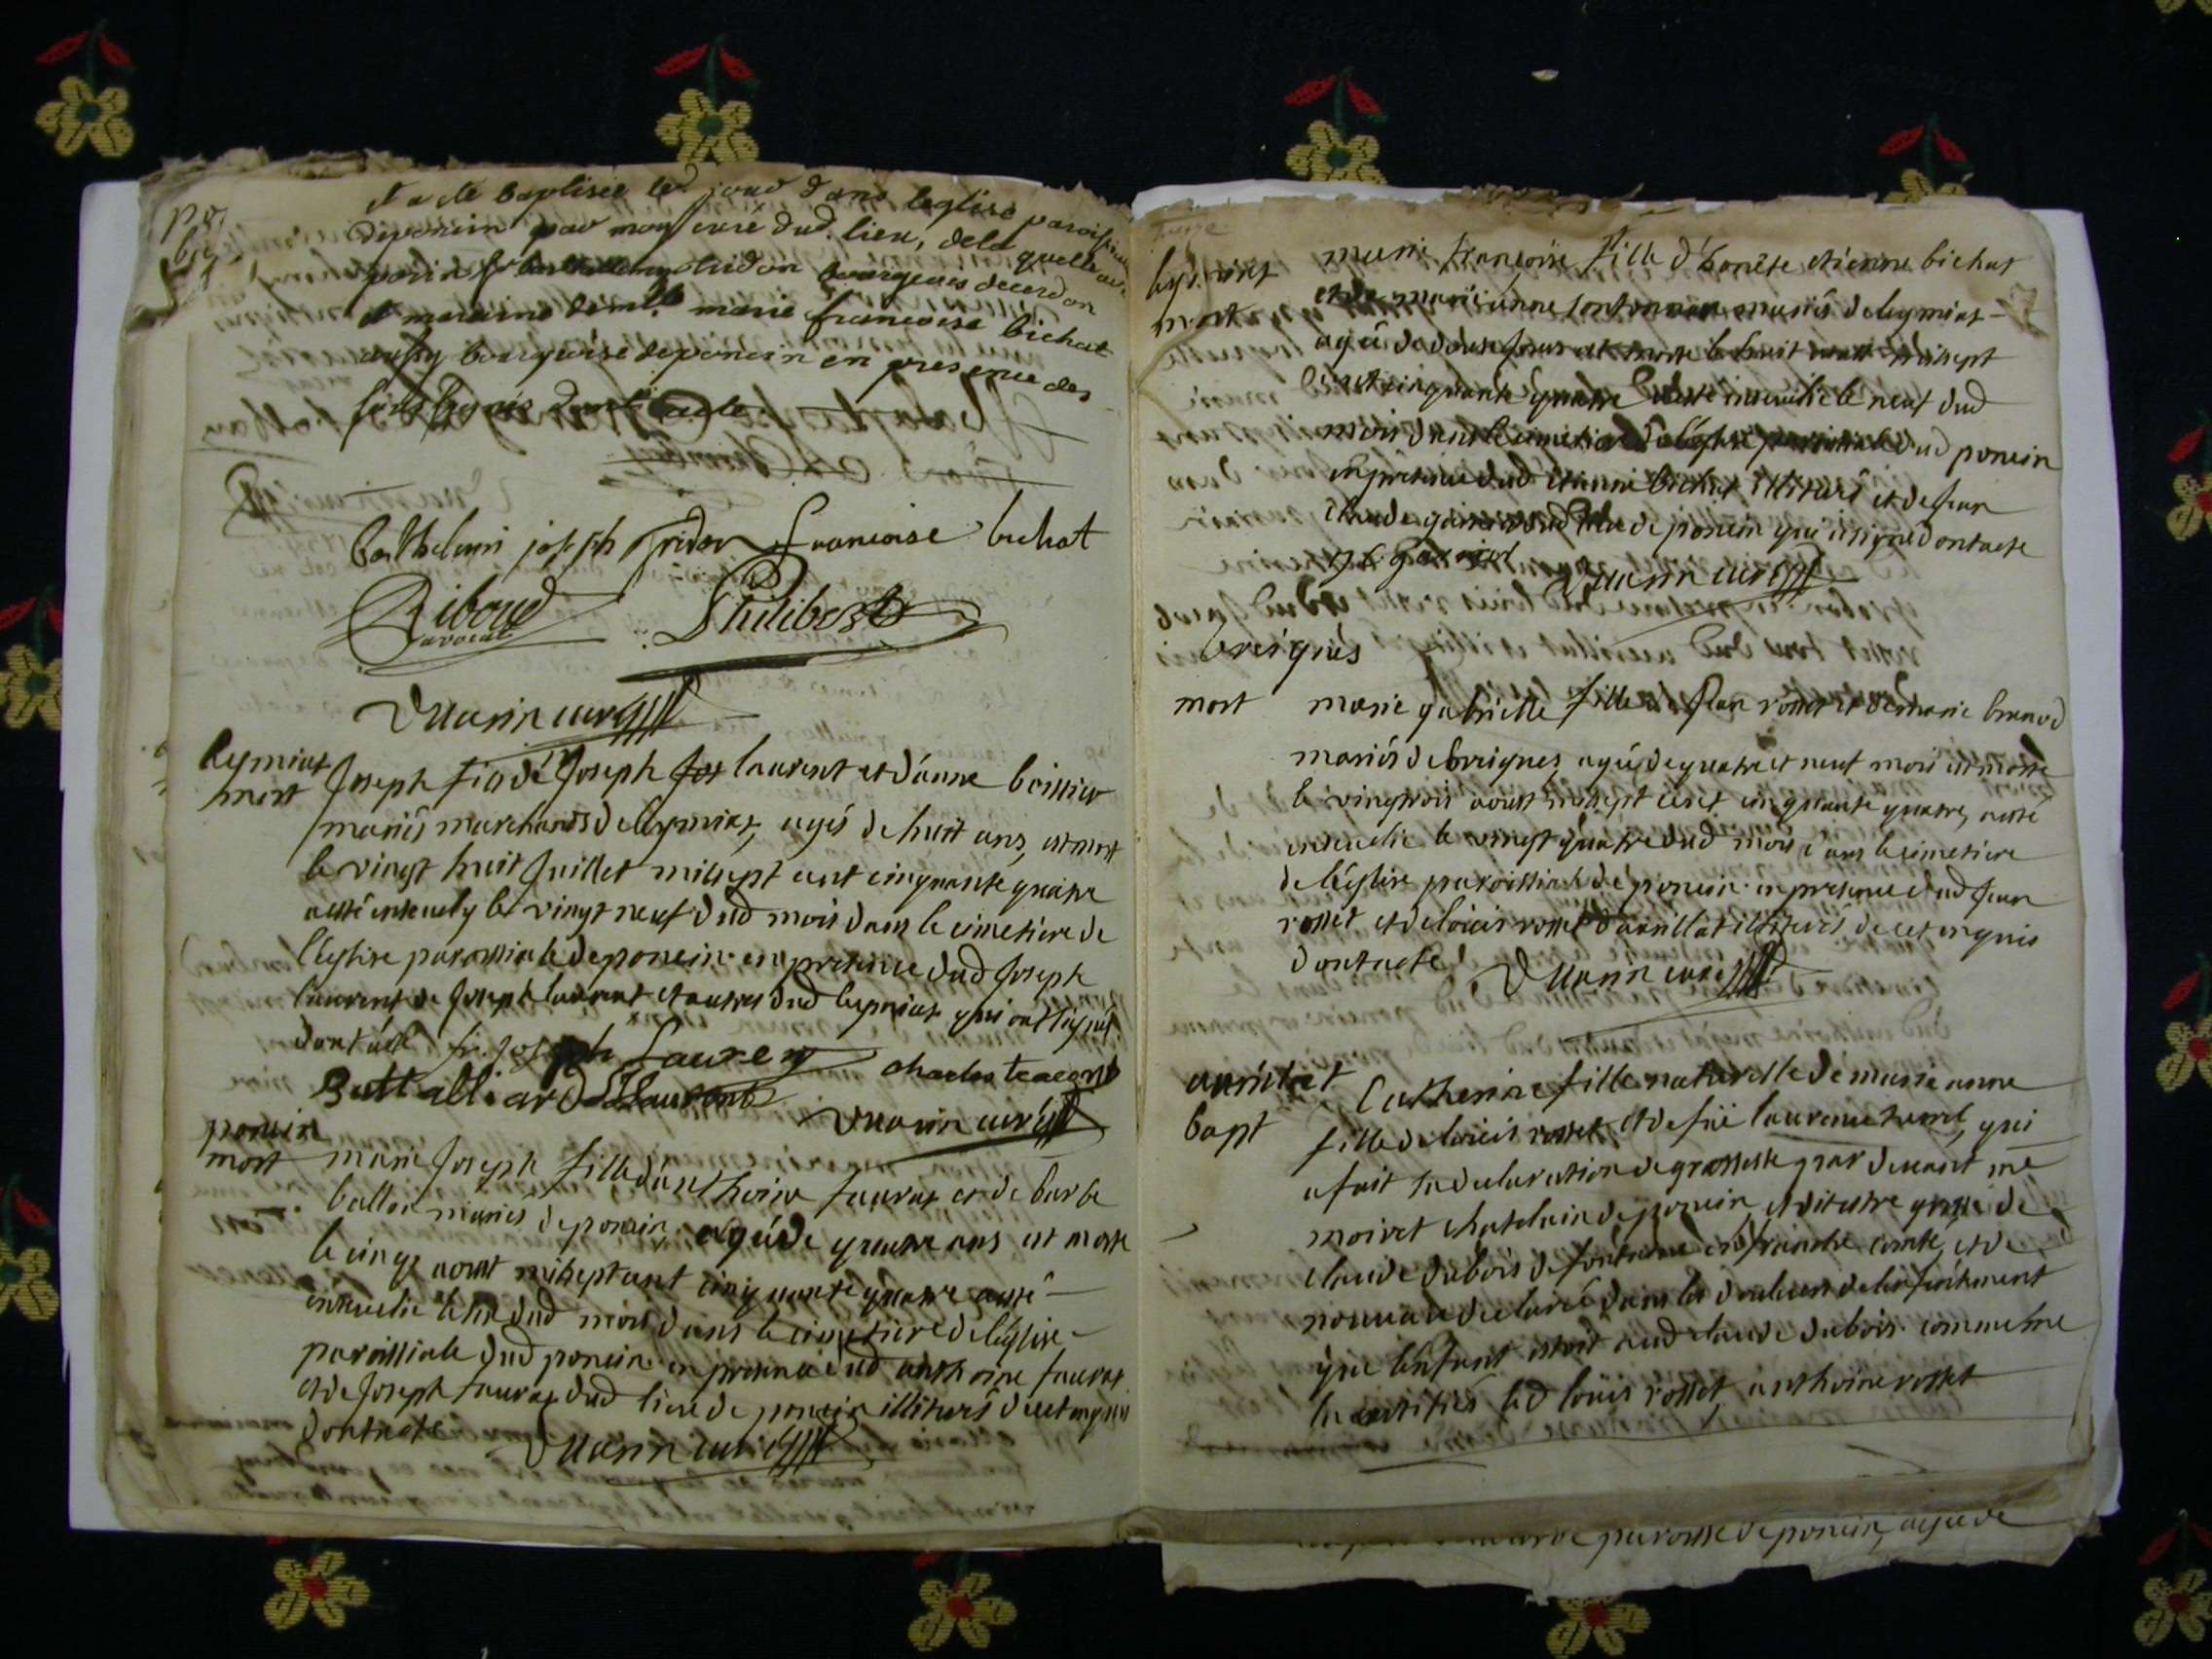 et a ete baptisée led jour dans leglise paroissiale
deponcin par moy curé dud. lieu, dela quelle
bourgeois decerdon
et maraine demlle marie francoise bichat
aussy bourgoise deponcin en presence des
dont acte
barthelemi joseph françoise bichat
Riboud Philibert
avocat
curé
leymiat
mort
Joseph fils de Joseph laurent et d'anne boissieu
mariés marchands deleymiat, agés de huit ans, est mort
le vingt huit Juillet milsept cent cinquante quatre
aesté enseuely le vingt neuf dud mois dans le cimetiere de
l'eglise paroissiale deponcin en presence dud Joseph
laurent de Joseph laurent et autres dud leymiat qui ont signés
dont acte fr. joseph Laurent charles
curé
poncin
mort
marie Joseph fille d'anthoine fauras et de barbe
ballon mariés de poncin, agéé de quatre ans est morte
le cinq aoust milseptcent cinquante quatre aesté
enseuelie le six dud mois dans le cimetiere de léglise
paroissiale dud poncin en presence dud anthoine fauras
et de Joseph fauras dud lieu de poncin illiturés de cet enquis
dontacte
curé
leymiat
mort
marie françoise fille d'honéte etienne bichat
et de marie anne mariés deleymiat
agéé de douse jours est morte le huit aoust milsept
cent cinquante quatre aesté enseuelie le neuf dud
mois dans le cimetiere deléglise paroissiale dud poncin
en presence dud etienne bichat illituré et de Jean
claude dud lieu de poncin qui a signé dontacte
curé
breignes
mort
marie gabrielle fille de Jean rosset et de marie
mariés de breignes, agéé de quatre et neuf mois est morte
le vingtrois aoust milsept cent cinquante quatre, aesté
enseuelie le vingt quatre dud mois dans le cimetiere
de l'église paroissiale de poncin en presence dud Jean
rosset et de loüis rosset d'avrillat illiturés de cet enquis
dontacte
curé
avrillat
bapt
Catherine fille naturelle de marie anne
fille de loüis rosset, et de füe laurence, qui
a fait sa declaration de grossesse par devant me
moiret chatelain de poncin, et dit estre grosse de
claude dubois de en franche comté, et de
nouveau declaré dans les douleurs de l'enfantement
que l'enfant estoit aud claude dubois comme me
led loüis rosset, anthoine rosset
paroisse de poncin, agéé de